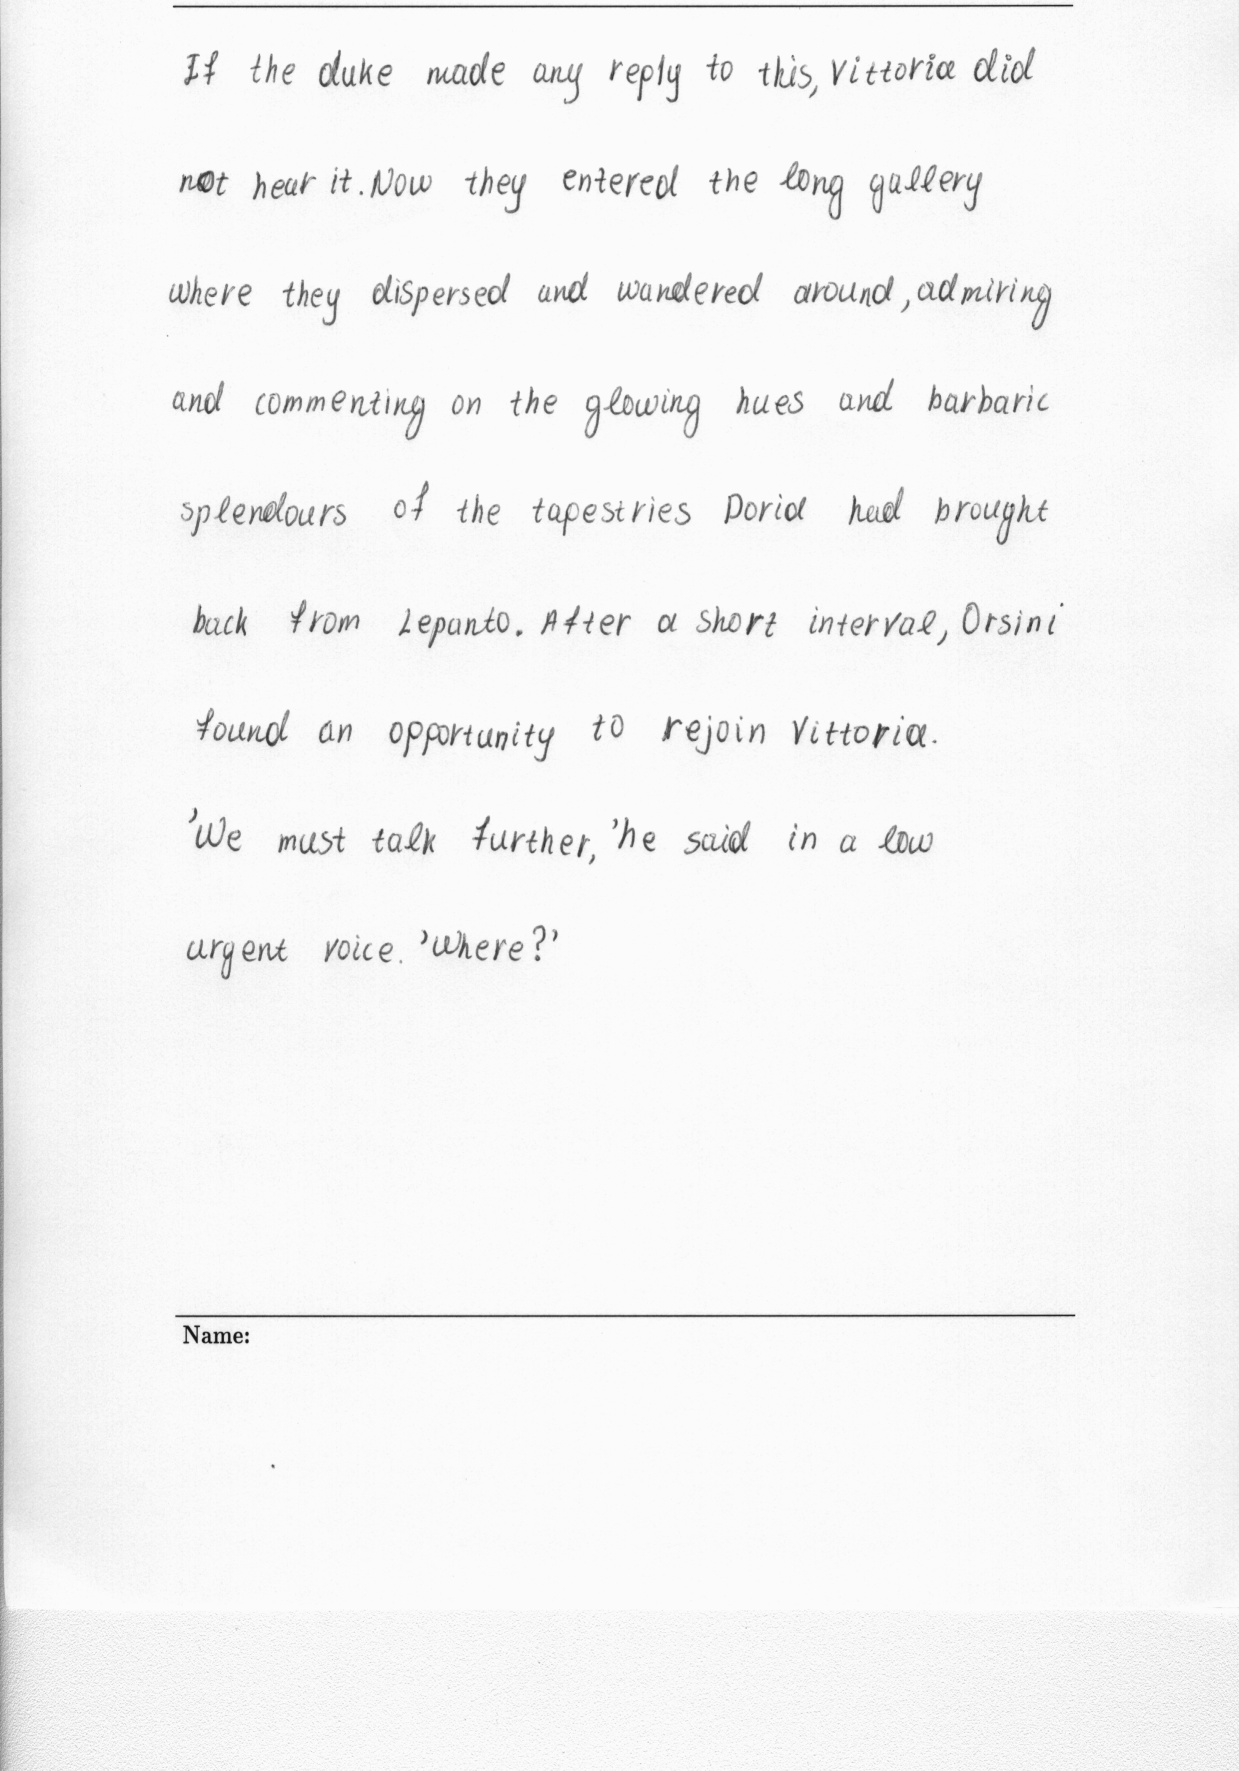 If the duke made any reply to this, Vittoria did
not hear it. Now they entered the long gallery
where they dispersed and wandered around, admiring
and commenting on the glowing hues and barbaric
splendours of the tapestries Doria had brought
back from Lepanto. After a short interval, Orsini
found an opportunity to rejoin Vittoria.
'We must talk further,' he said in a low
urgent voice. 'Where?'
Name: